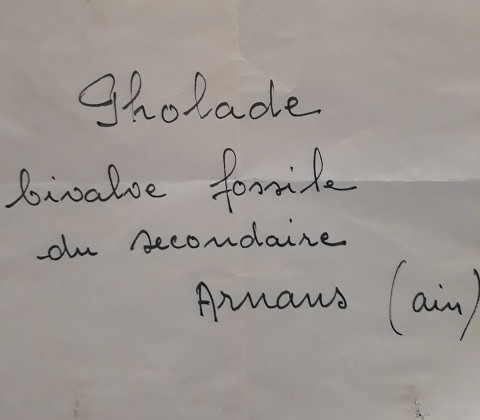 Pholade
bivalve fossile
du secondaire
Arnans (ain)